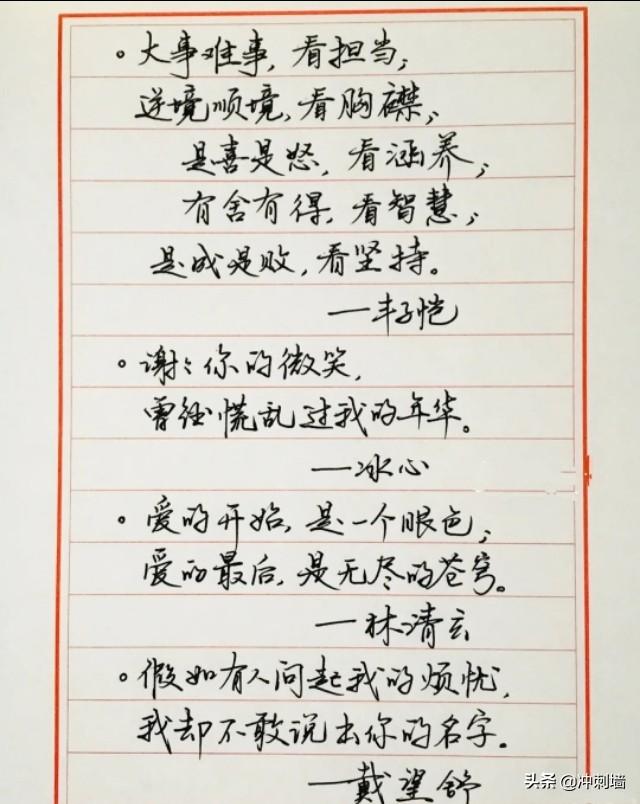 。大事难事,看担当;
逆境顺境,看胸襟;
是喜是怒,看涵养;
有舍有得,看智慧;
是成是败,看坚持。
——丰子恺
。谢谢你的微笑,
曾经慌乱过我的年华。
——冰心
。爱的开始,是一个眼色;
爱的最后,是无尽的苍穹。
——林清玄
。假如有人问起我的烦忧,
我却不敢说出你的名字。
——戴望舒
头条@冲刺墙